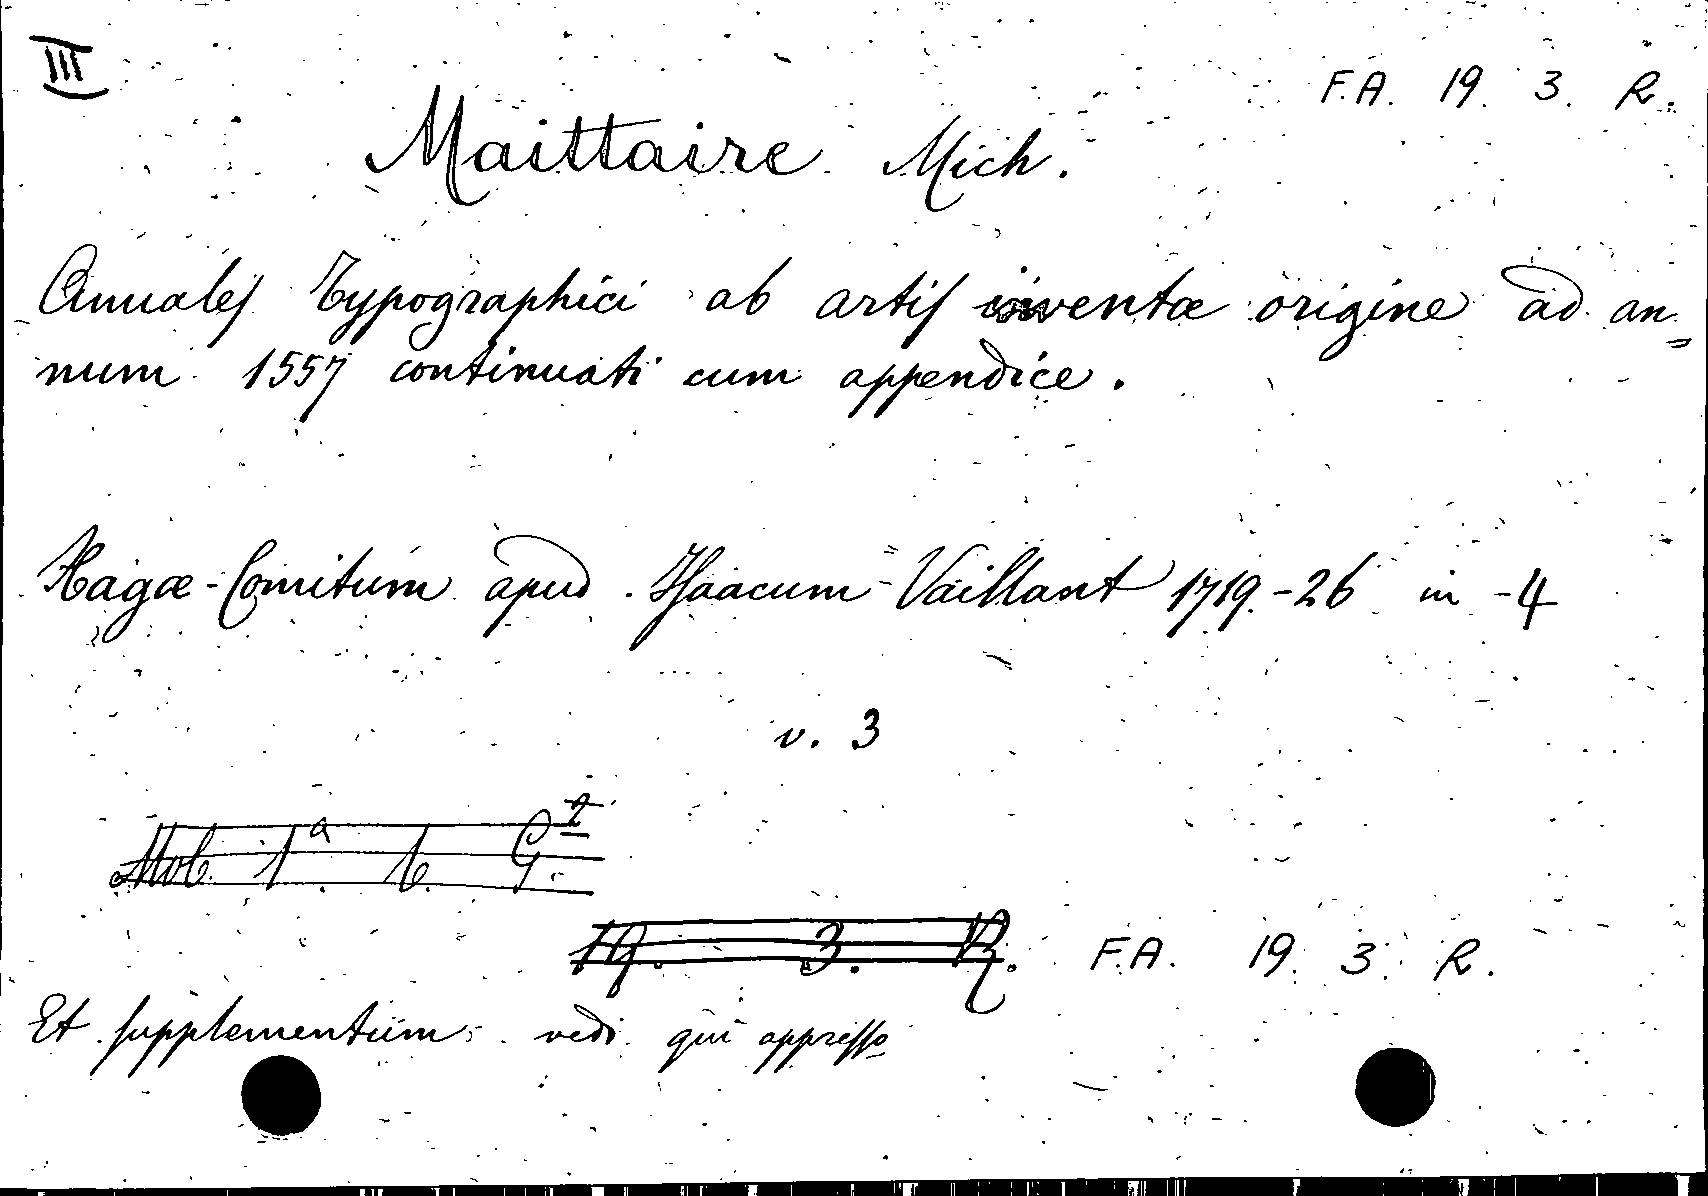 III
F.A. 19. 3. R.
Maittaire Mich.
Annales Typographici ab artis inventæ origine ad an=
num 1557 continuati cum appendice.
Hagæ-Comitum apud Isaacum Vaillant 1719-26 in-4
v. 3
Mob. 1a. 6. G.2
19. 3. R. F.A. 19. 3. R.
Et supplementum vedi qui appresso